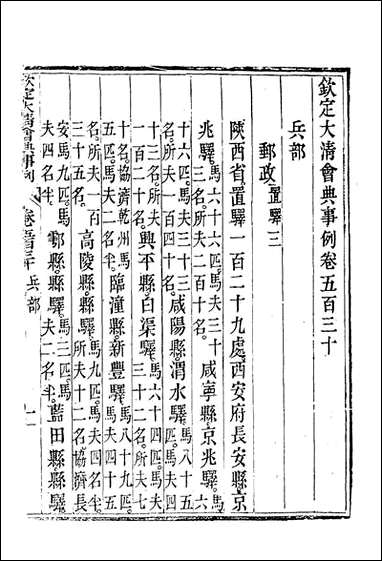 欽定大清會典事例卷五百三十
兵部
郵政 置驛三
陝西省置驛一百二十九處西安府長安縣京
兆驛 馬六十六匹馬夫三十三名所夫二百十名 咸寧縣京兆驛 馬六
十六匹馬夫三十三名所夫一百四十名 咸陽縣渭水驛 馬八十五匹馬夫四
十三名所夫一百二十名 興平縣白渠驛 馬六十四匹馬夫三十二名所夫七
十名協濟乾州馬五匹馬夫二名半 臨潼縣新豐驛 馬八十九匹馬夫四十五
名所夫一百三十五名 高陵縣縣驛 馬九匹馬夫四名半所夫十二名協濟長
安馬九匹馬夫四名半 鄠縣縣驛 馬三匹馬夫二名半 藍田縣縣驛
欽定大清會典事例 卷五百三十 兵部 一